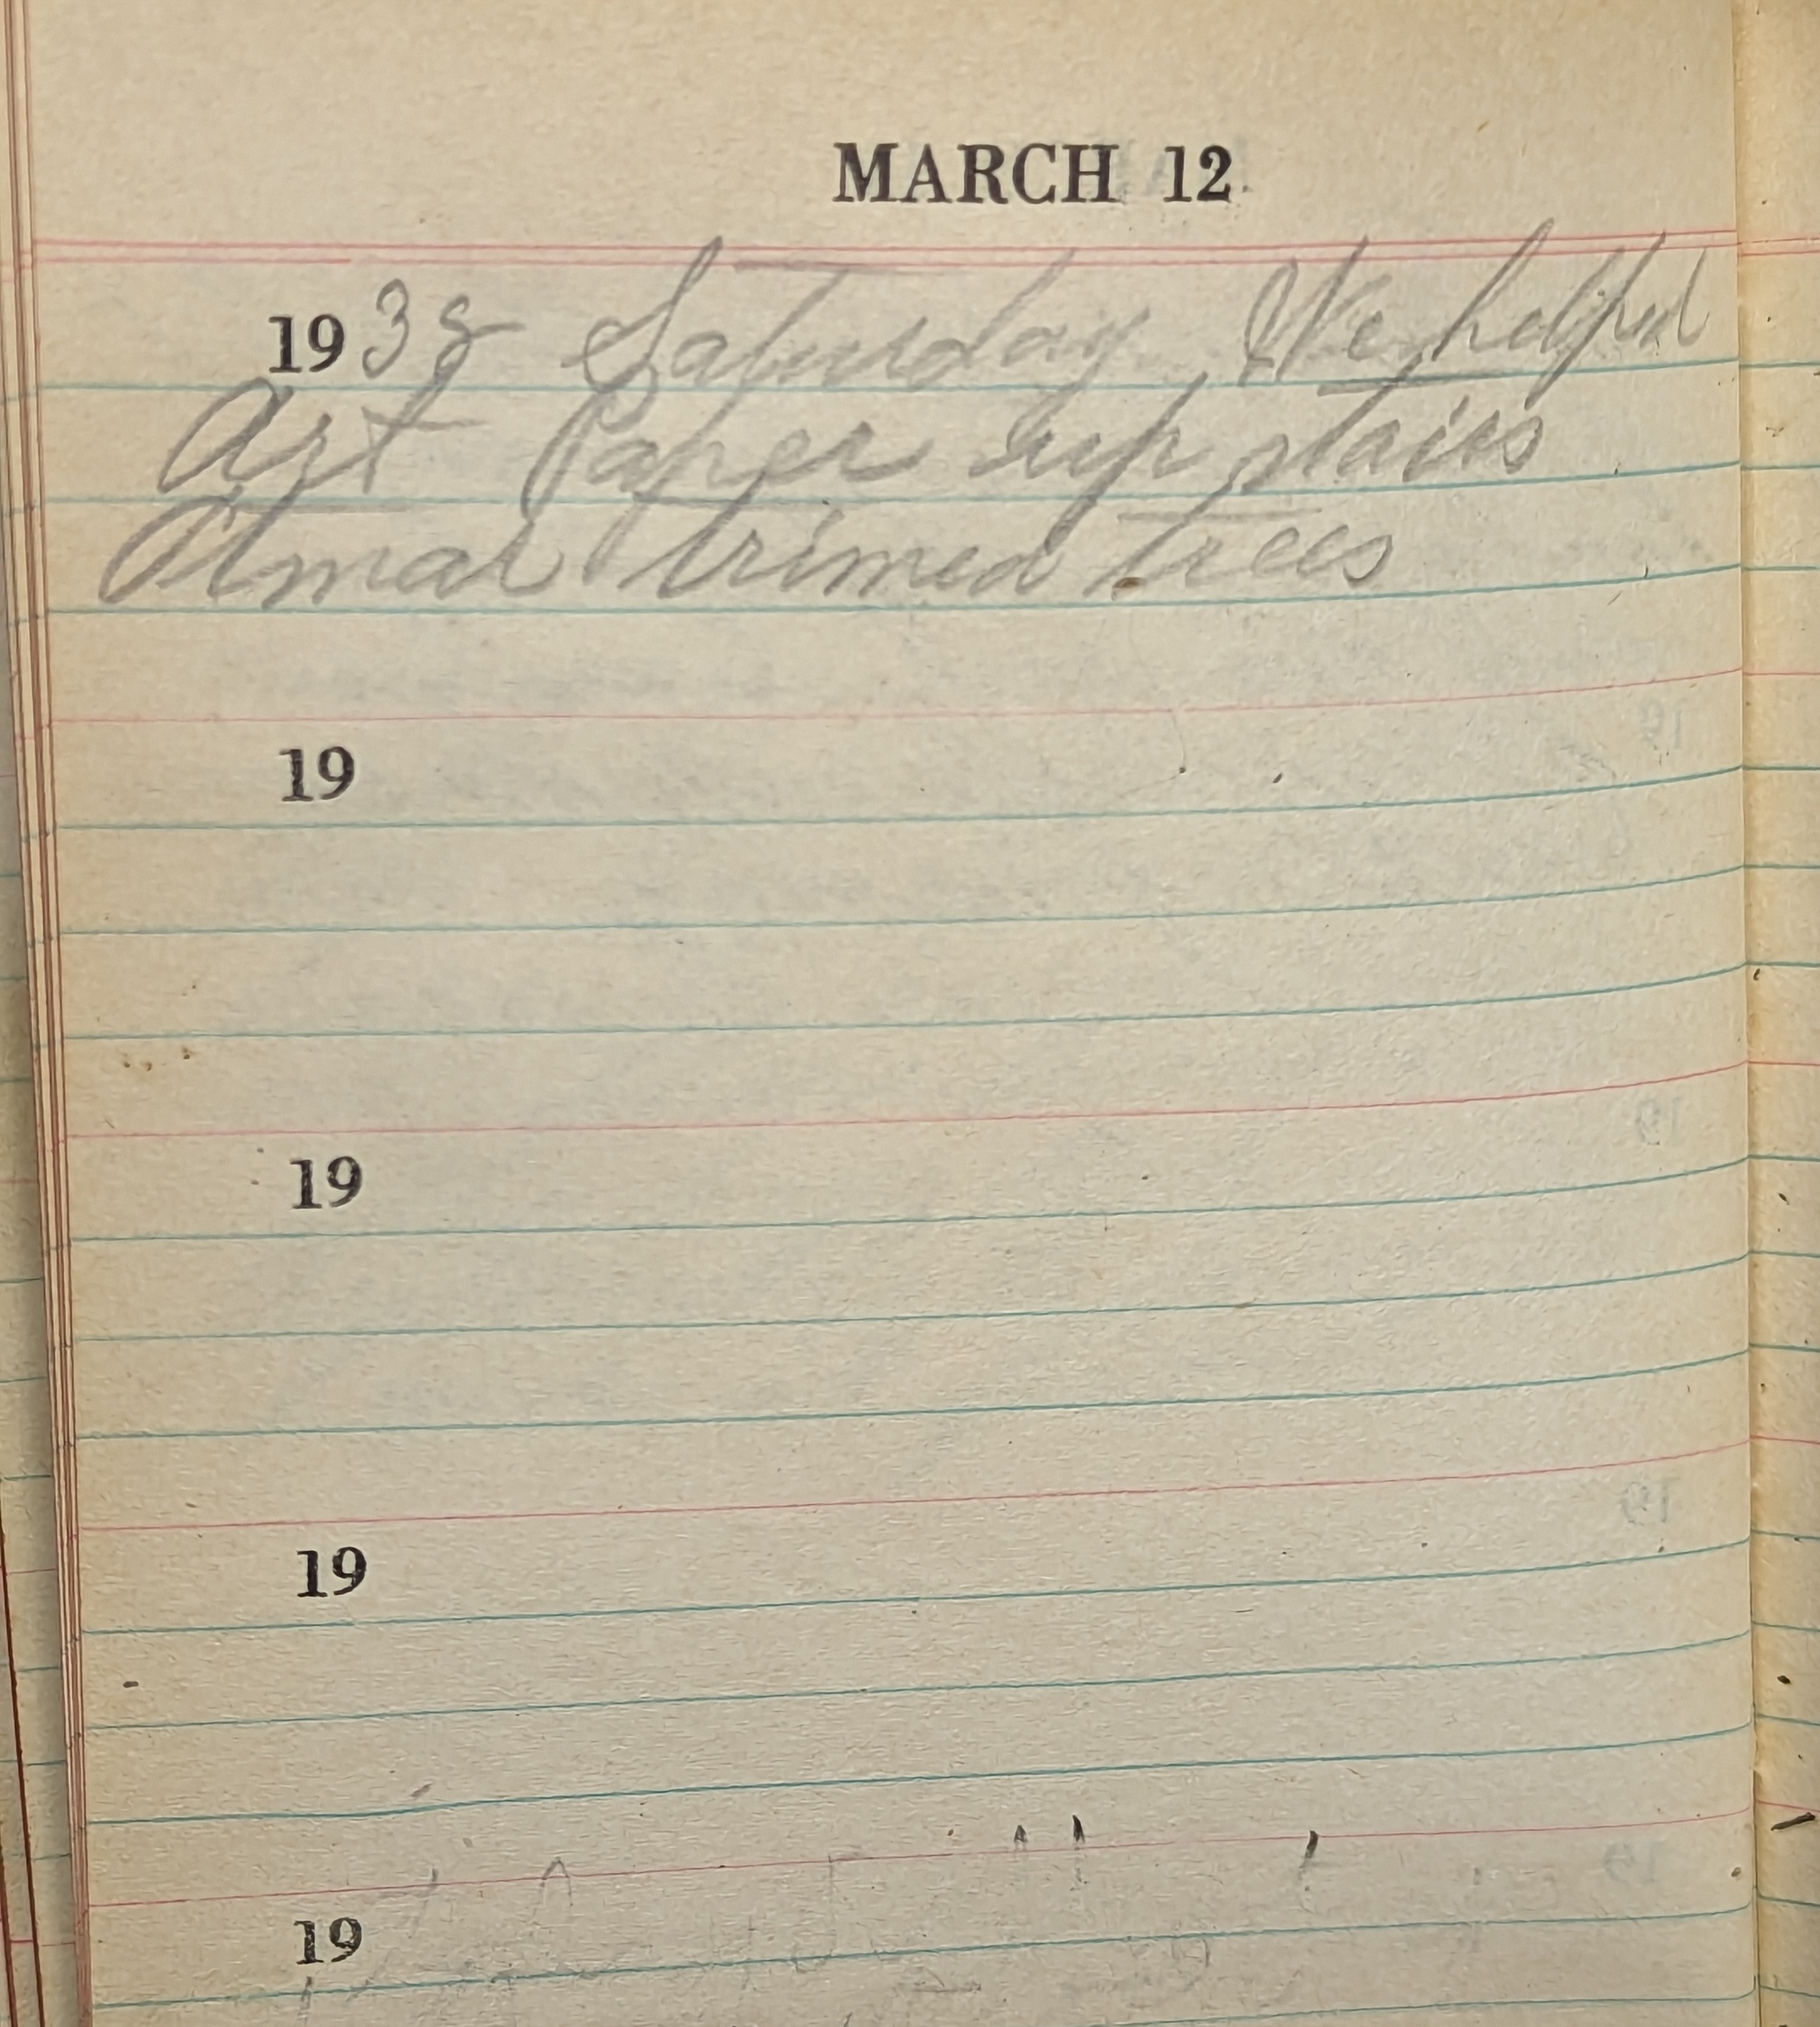 MARCH 12
1938 Saturday We helped
Art Paper up stairs
Olmar trimed trees
19
19
19
19